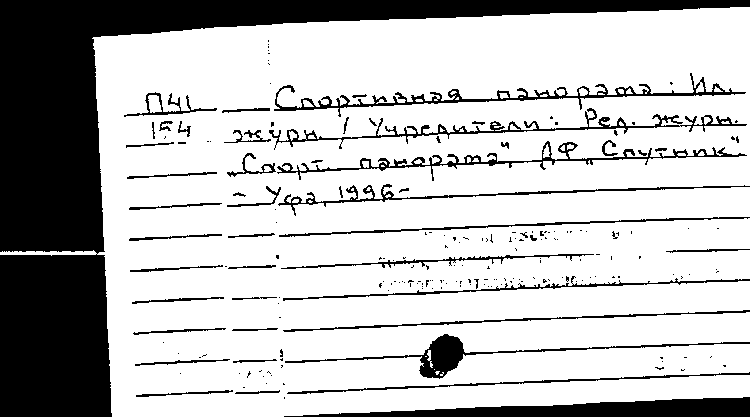 П41 Спортивная панорама: Ил.
154 журн. / Учредители: Ред. журн.
„Спорт. панорама", ДФ „Спутник".
- Уфа, 1996-